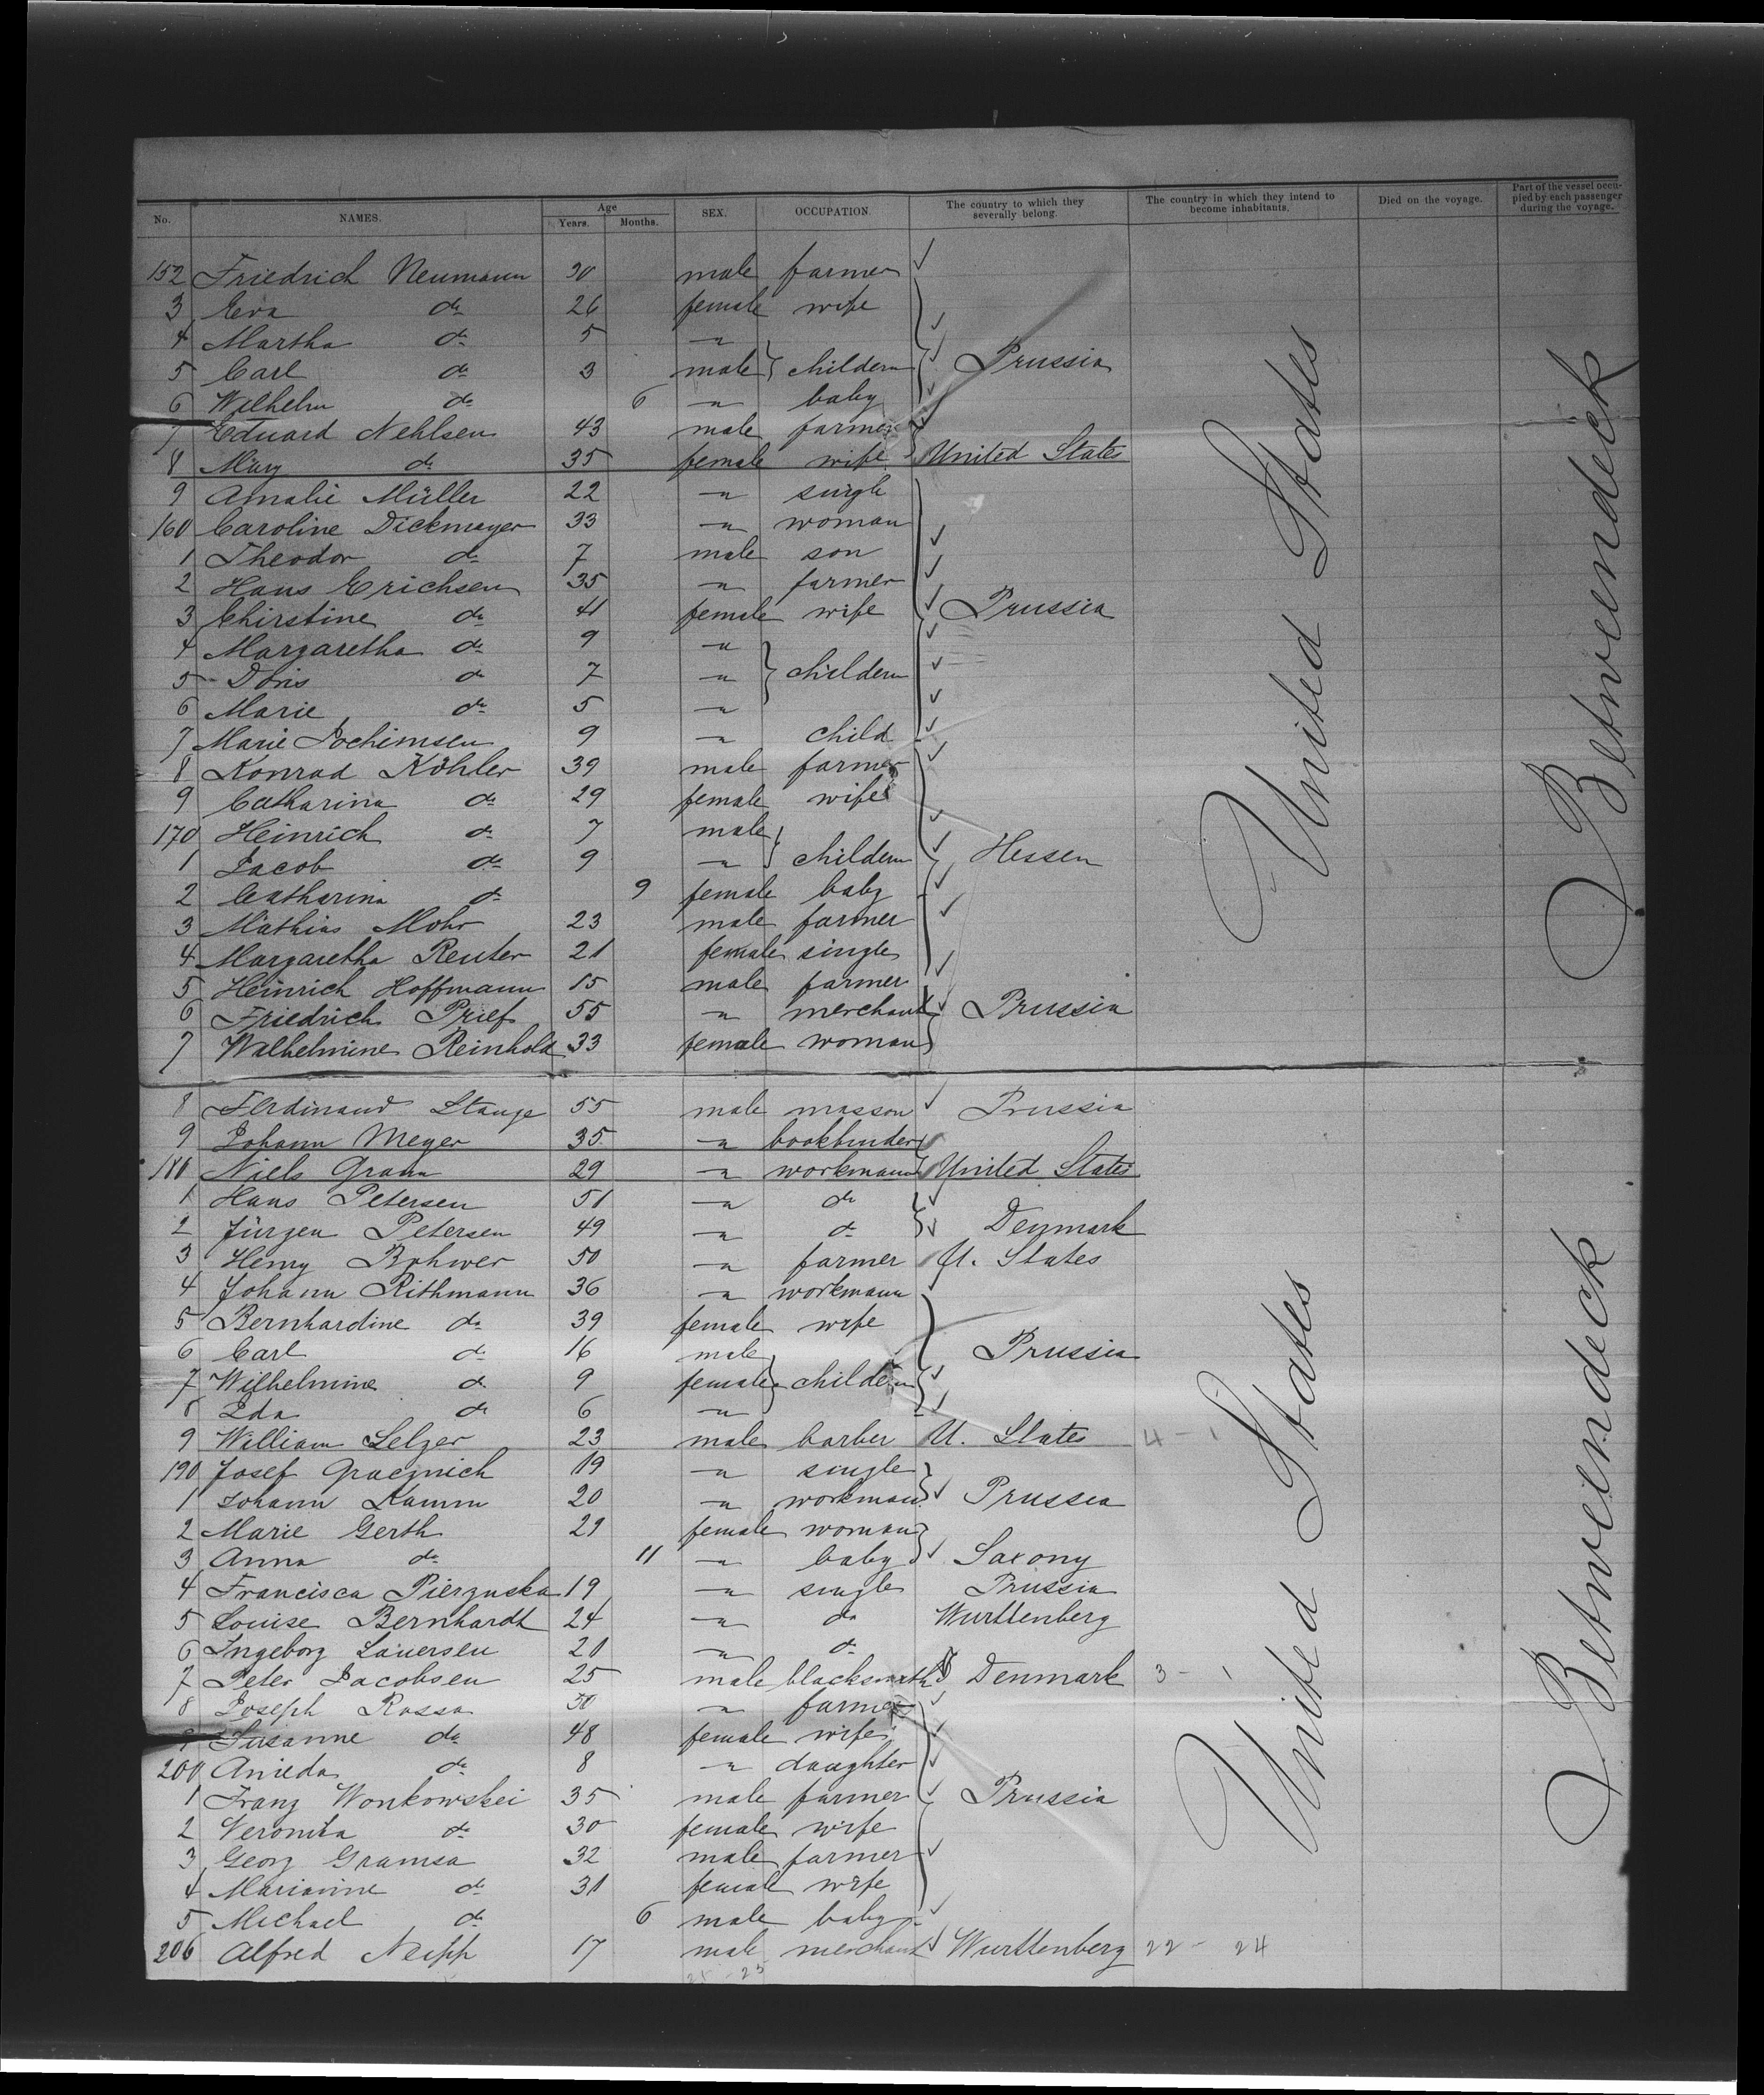 No. NAMES. Age Years. Months. SEX. OCCUPATION. The country to which they severally belong. The country in which they intend to become inhabitants. Died on the voyage. Part of the vessel occupied by each passenger during the voyage.
152 Friedrich Neumann 30 male farmer
3 Eva do 26 female wife
4 Martha do 5 —"
5 Carl do 3 male } childern } Prussia
6 Wilhelm do 6 —" baby
7 Eduard Nehlsen 43 male farmer
8 Mary do 35 female wife United States
9 Amalie Müller 22 —" single
160 Caroline Dickmeyer 33 —" woman
1 Theodor do 7 male son
2 Hans Erichsen 35 —" farmer
3 Chirstine do 41 female wife Prussia
4 Margaretha do 9 —"
5 Doris do 7 —" } childern
6 Marie do 5 —"
7 Marie Jochimsen 9 —" child
8 Konrad Köhler 39 male farmer
9 Catharina do 29 female wife
170 Heinrich do 7 male
1 Jacob do 9 —" } childern } Hessen
2 Catharina do 9 female baby
3 Mathias Mohr 23 male farmer
4 Margaretha Reuter 21 female single
5 Heinrich Hoffmann 15 male farmer
6 Friedrich Prief 55 —" merchant Prussia
7 Wilhelmine Reinhold 33 female woman
8 Ferdinand Stange 55 male masson Prussia
9 Johann Meyer 35 —" bookbinder
180 Niels Grann 29 —" workmann United States
1 Hans Petersen 51 —" do
2 Jürgen Petersen 49 —" do Denmark
3 Henry Rohwer 50 —" farmer U. States
4 Johann Rithmann 36 —" workmann
5 Bernhardine do 39 female wife
6 Carl do 16 male Prussia
7 Wilhelmine do 9 female } childern
8 Ida do 6 —"
9 William Selzer 23 male barber U. States 4 - 1
190 Josef 19 —" single
1 Johann Kamm 20 —" workman Prussia
2 Marie Gerth 29 female woman
3 Anna do 11 —" baby Saxony
4 Francisca Pierzuska 19 —" single Prussia
5 Louise Bernhardt 24 —" do Wurttenberg
6 Ingeborg Lauersen 20 —" do
7 Peter Jacobsen 25 male blacksmith Denmark 3 - 1
8 Joseph Rossa 50 —" farmer
9 Susanne do 48 female wife
200 Anieda do 8 —" daughter
1 Franz Wonkowskei 35 male farmer Prussia
2 Veronika do 30 female wife
3 Georg Gramsa 32 male farmer
4 Marianne do 31 female wife
5 Michael do 6 male baby
206 Alfred Neipp 17 male merchant Wurttenberg 22 - 24
25 - 25
United States
Betweendeck
United States
Betweendeck